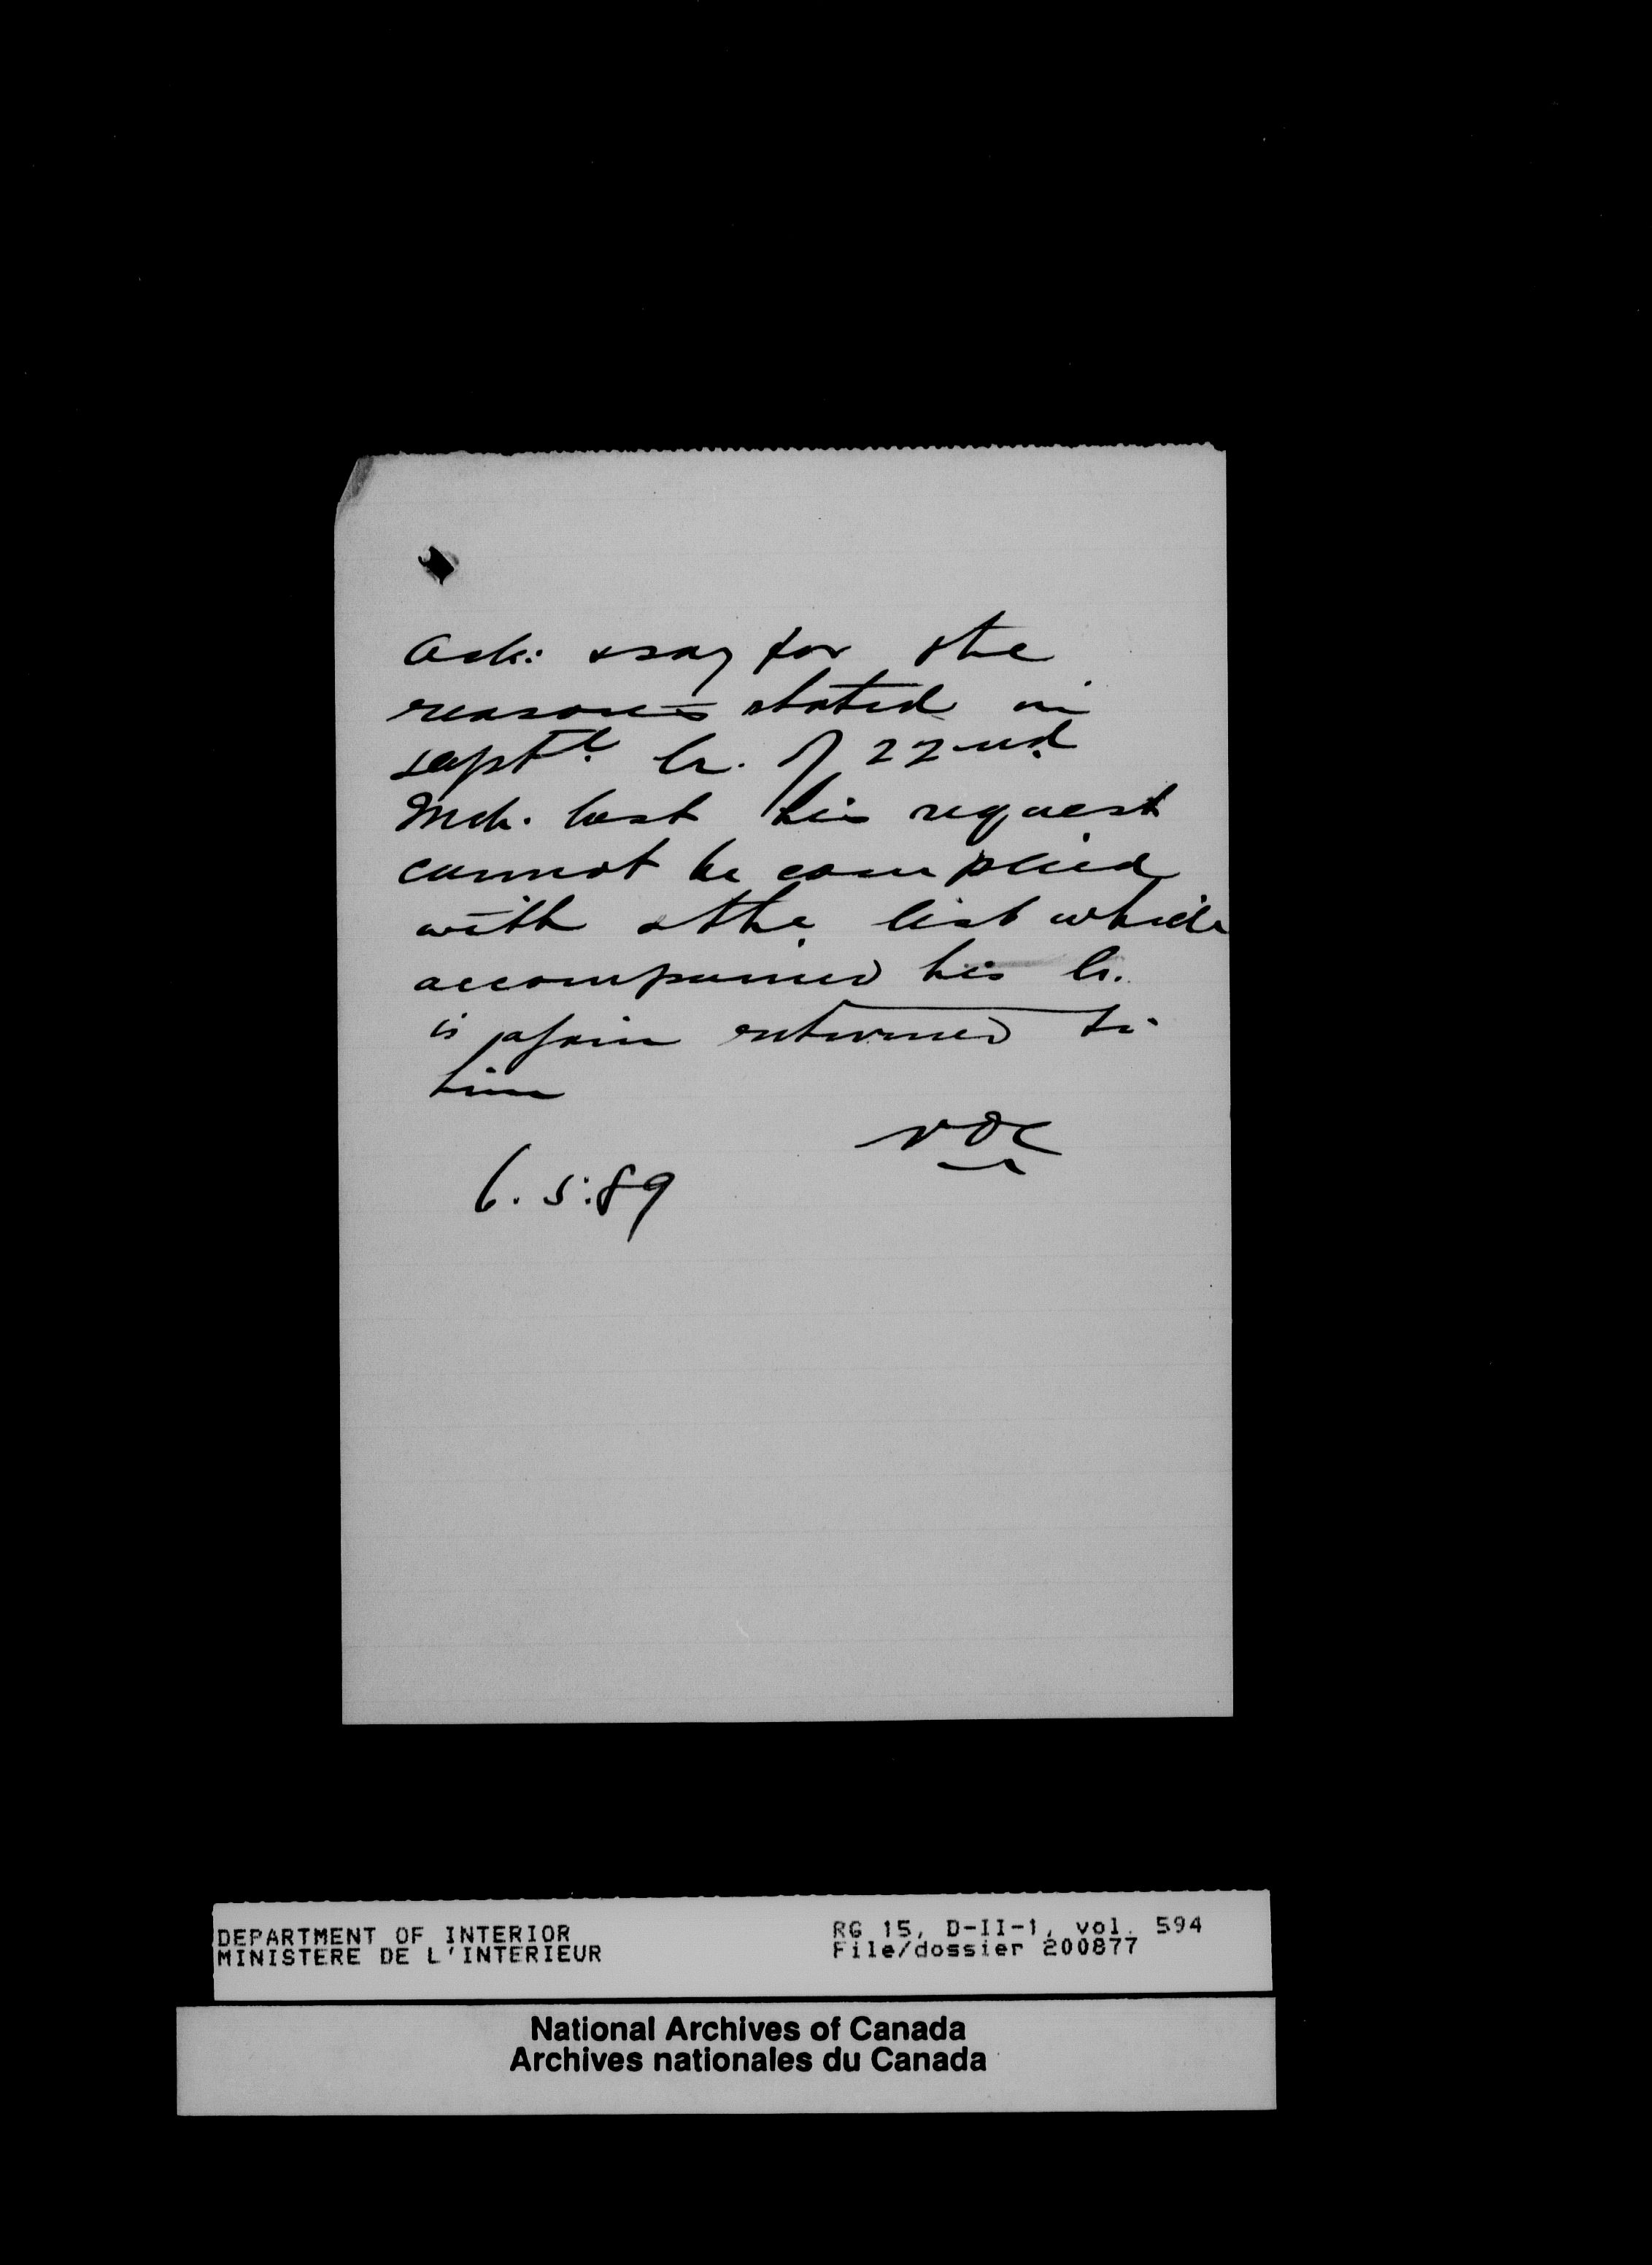 Ack: & say for the
reasons stated in
Dept l. lr. of 22nd
Mch. last his request
cannot be complied
with & the list which
accompanied his lr.
is again returned to
him
6.5:89
DEPARTMENT OF INTERIOR
MINISTERE DE L'INTERIEUR
RG 15, D-II-1, vol. 594
File/dossier 200877
National Archives of Canada
Archives nationales du Canada